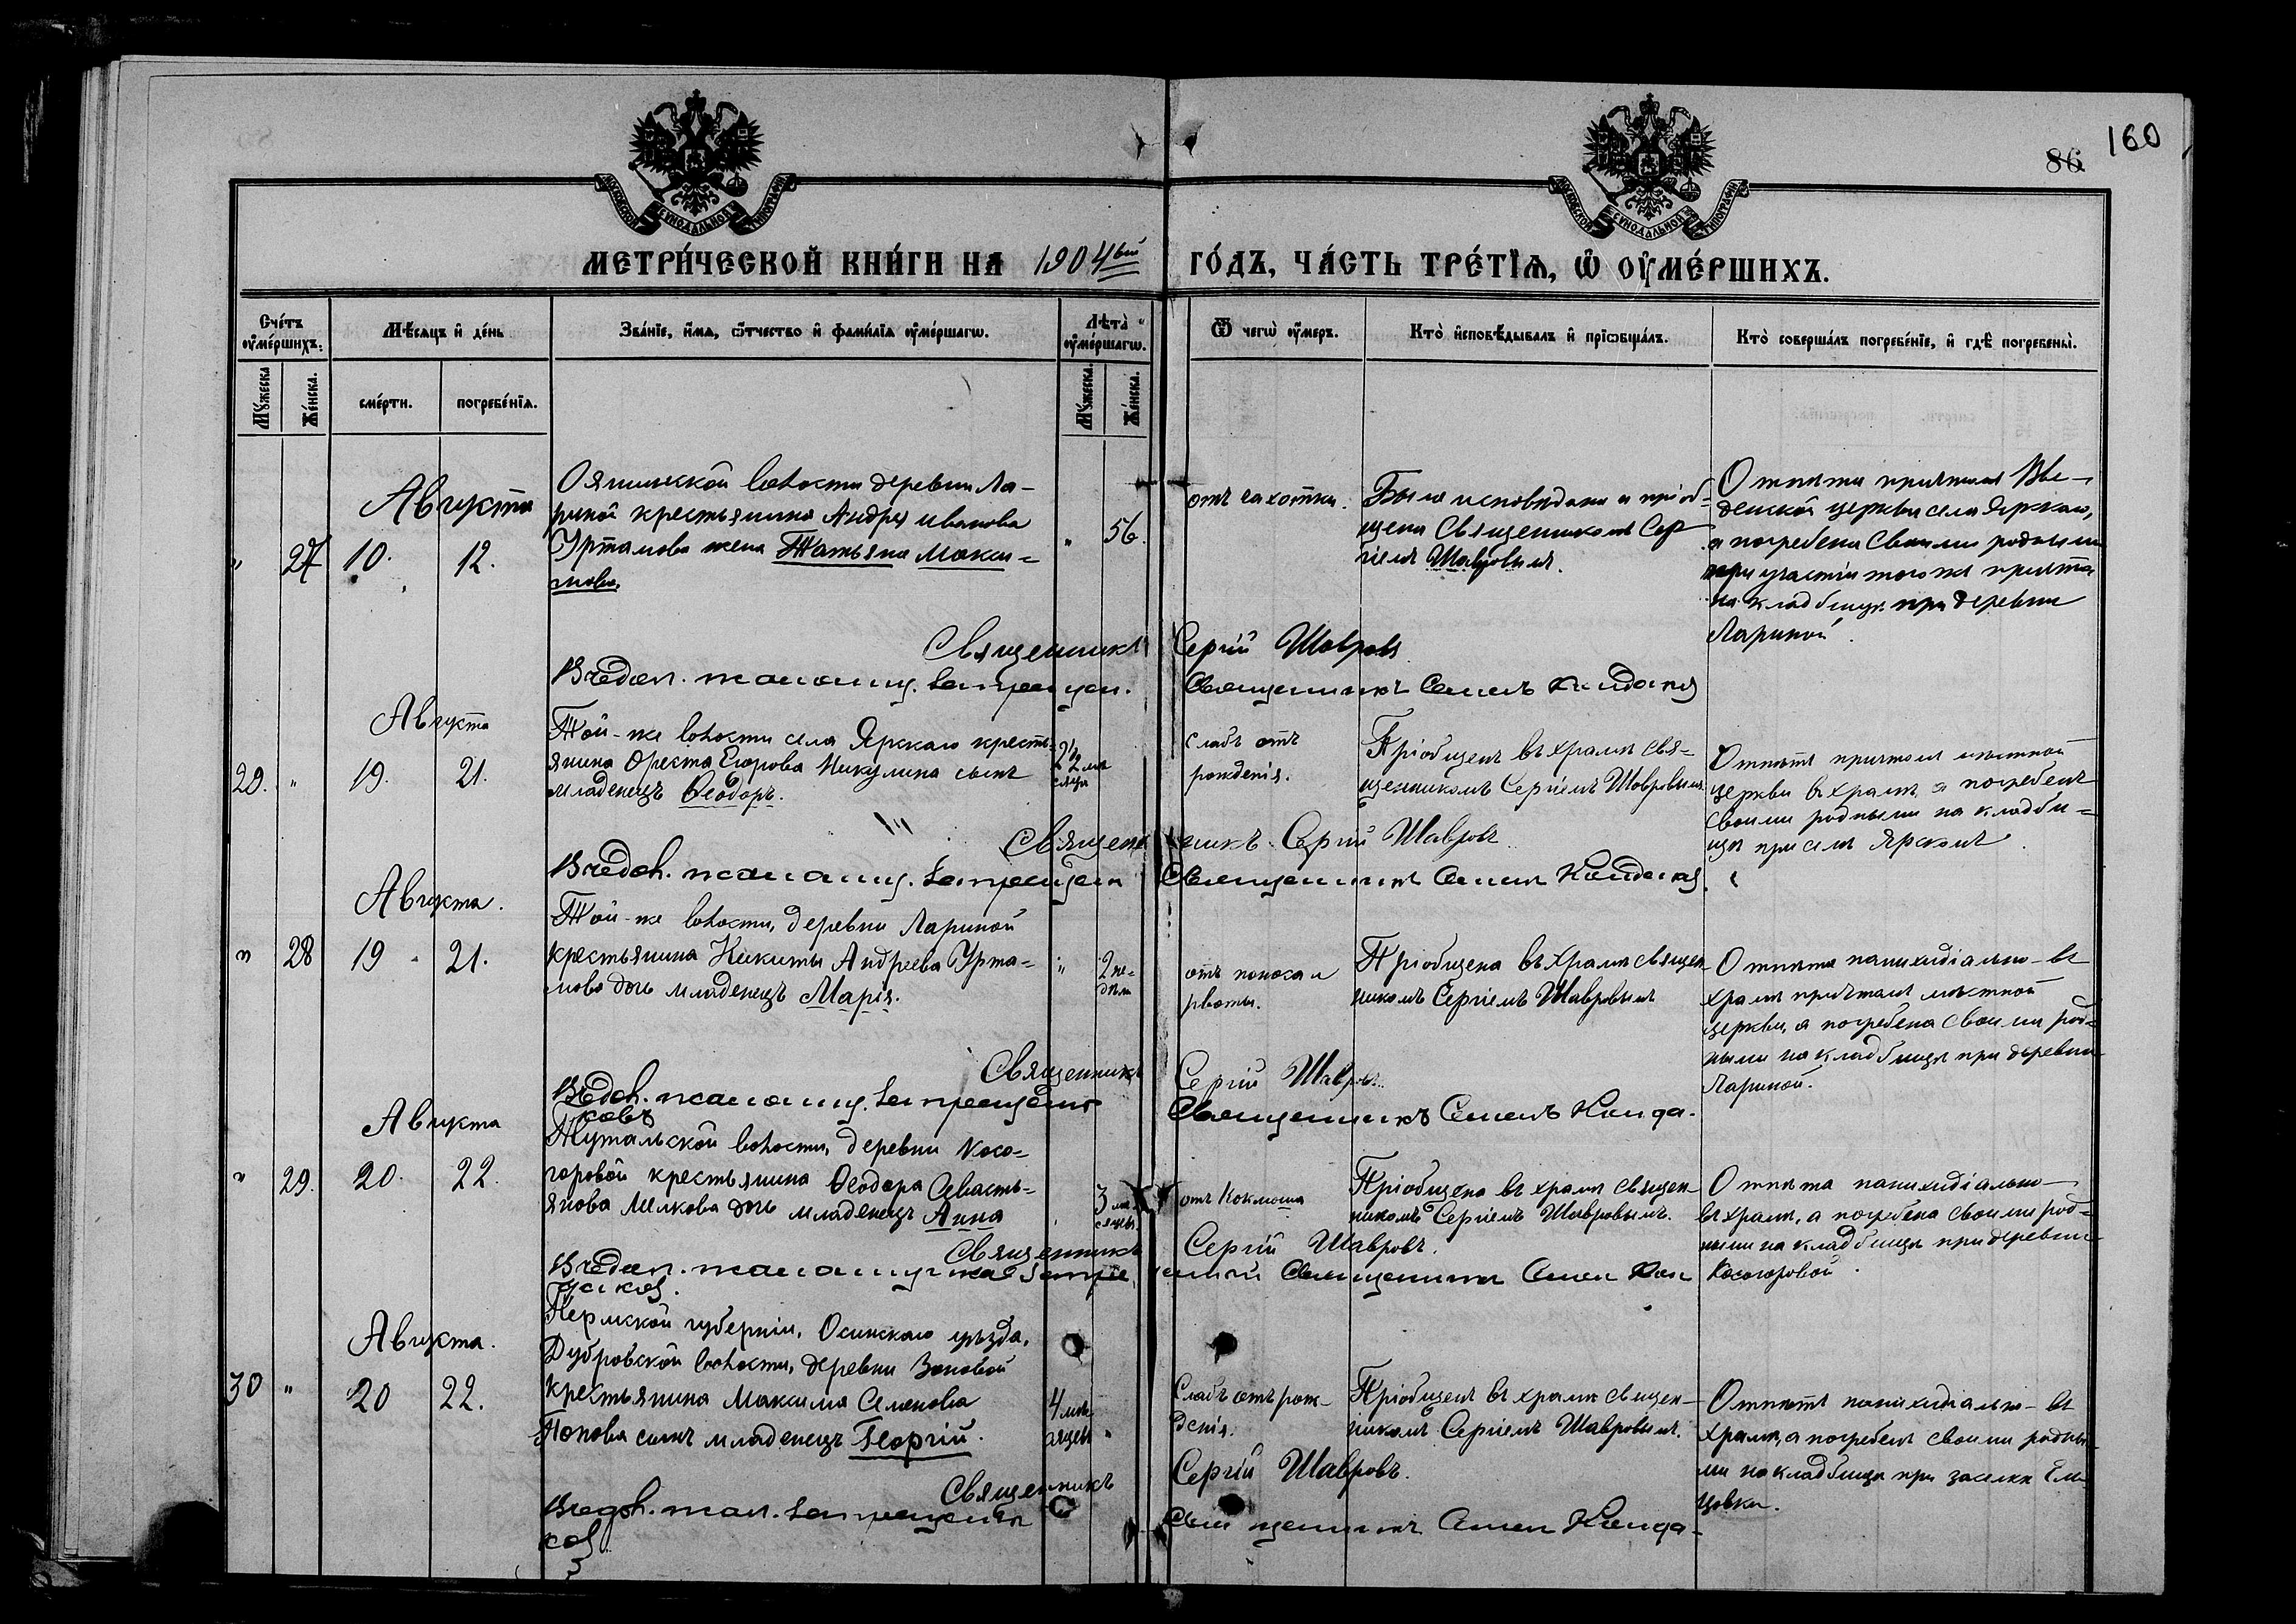 160
86
МОСКОВСКОЙ СѴНОДАЛЬНОЙ ТИПОГРАФІИ
МОСКОВСКОЙ СѴНОДАЛЬНОЙ ТИПОГРАФІИ
МЕТРИ́ЧЕСКОЙ КНИ́ГИ НА 1904ый ГО́ДЪ, ЧА́СТЬ ТРЕ́ТІѦ, Ѿ ОУ҆МЕ́РШИХЪ.
Сче́тъ оу҆ме́ршихъ.
Мѣ́сяцъ и҆ де́нь
Зва́нїе, и҆́мя, ѻ҆́тчество и҆ фами́лїя оу҆ме́ршагѡ.
Лѣта̀ оу҆ме́ршагѡ.
Ѿ чегѡ̀ оу҆́меръ.
Кто̀ и҆сповѣ́дывалъ и҆ прїѡбща́лъ.
Кто̀ соверша́лъ погребе́нїе, и҆ гдѣ̀ погребены̀.
Му́жеска
Же́нска.
сме́рти.
погребе́нїя.
Му́жеска.
Же́нска.
Августа
" 27 10. 12.
Ояшинской волости деревни Ла-
риной крестьянина Андрея Иванова
Уртамова жена Татьяна Макси-
мова
" 56.
отъ чахотки.
Была исповѣдана и пріоб-
щена Священникомъ Сер-
гіемъ Шавровымъ.
Отпѣта причтомъ Вве-
денской церкви села Ярскаго,
а погребена своими родными
при участіи того же причта
на кладбищѣ при деревни
Лариной.
Священникъ Сергій Шавровъ
Священникъ Семенъ
Августа
29. " 19. 21.
Той-же волости села Ярскаго кресть-
янина Ореста Егорова Никулина сынъ
младенецъ Ѳеодоръ.
2½ мѣ
сяца
слабъ отъ
рожденія.
Пріобщенъ въ храмѣ свя-
щенникомъ Сергіемъ Шавровымъ
Отпѣтъ причтомъ мѣстной
церкви въ храмѣ а погребенъ
своими родными на кладби-
щѣ при селѣ Ярскомъ
Священникъ Сергій Шавровъ
Священникъ Семенъ
Августа.
" 28 19 21.
Той-же волости, деревни Лариной
крестьянина Никиты Андреева Урта-
мова дочь младенецъ Марія.
" 2 не-
дѣли
отъ поноса и
рвоты.
Пріобщена въ храмѣ священ-
никомъ Сергіемъ Шавровымъ
Отпѣта панихидіально-въ
храмѣ причтомъ мѣстной
церкви, а погребена своими род-
ными на кладбищѣ при деревни
Лариной.
Священникъ Сергій Шавровъ.
Священникъ Семенъ Конда-
ковъ
Августа
" 29. 20. 22.
Тутальской волости, деревни Косо-
горовой крестьянина Ѳеодора Севасть-
янова Мелкова дочь младенецъ Анна
3 мѣ-
сяцевъ
отъ Коклюша
Пріобщена въ храмѣ священ-
никомъ Сергіемъ Шавровымъ.
Отпѣта панихидіально-
въ храмѣ, а погребена своими род-
ными на кладбищѣ при деревни
Косогоровой.
Священникъ Сергій Шавровъ.
Священникъ Семен Кон
даков.
Августа.
30 " 20 22.
Пермской губерніи, Осинскаго уѣзда,
Дубровской волости, деревни Зоновой
крестьянина Максима Семенова
Попова сынъ младенецъ Георгій.
4 мѣ-
сяцевъ "
Слабъ отъ рож-
денія.
Пріобщенъ въ храмѣ священ-
никомъ Сергіемъ Шавровымъ.
Отпѣтъ панихидіально-въ
храмѣ, а погребенъ своими родны-
ми на кладбищѣ при заселкѣ Ель-
цовки.
Священникъ Сергій Шавровъ.
Священникъ Семен Конда-
ков